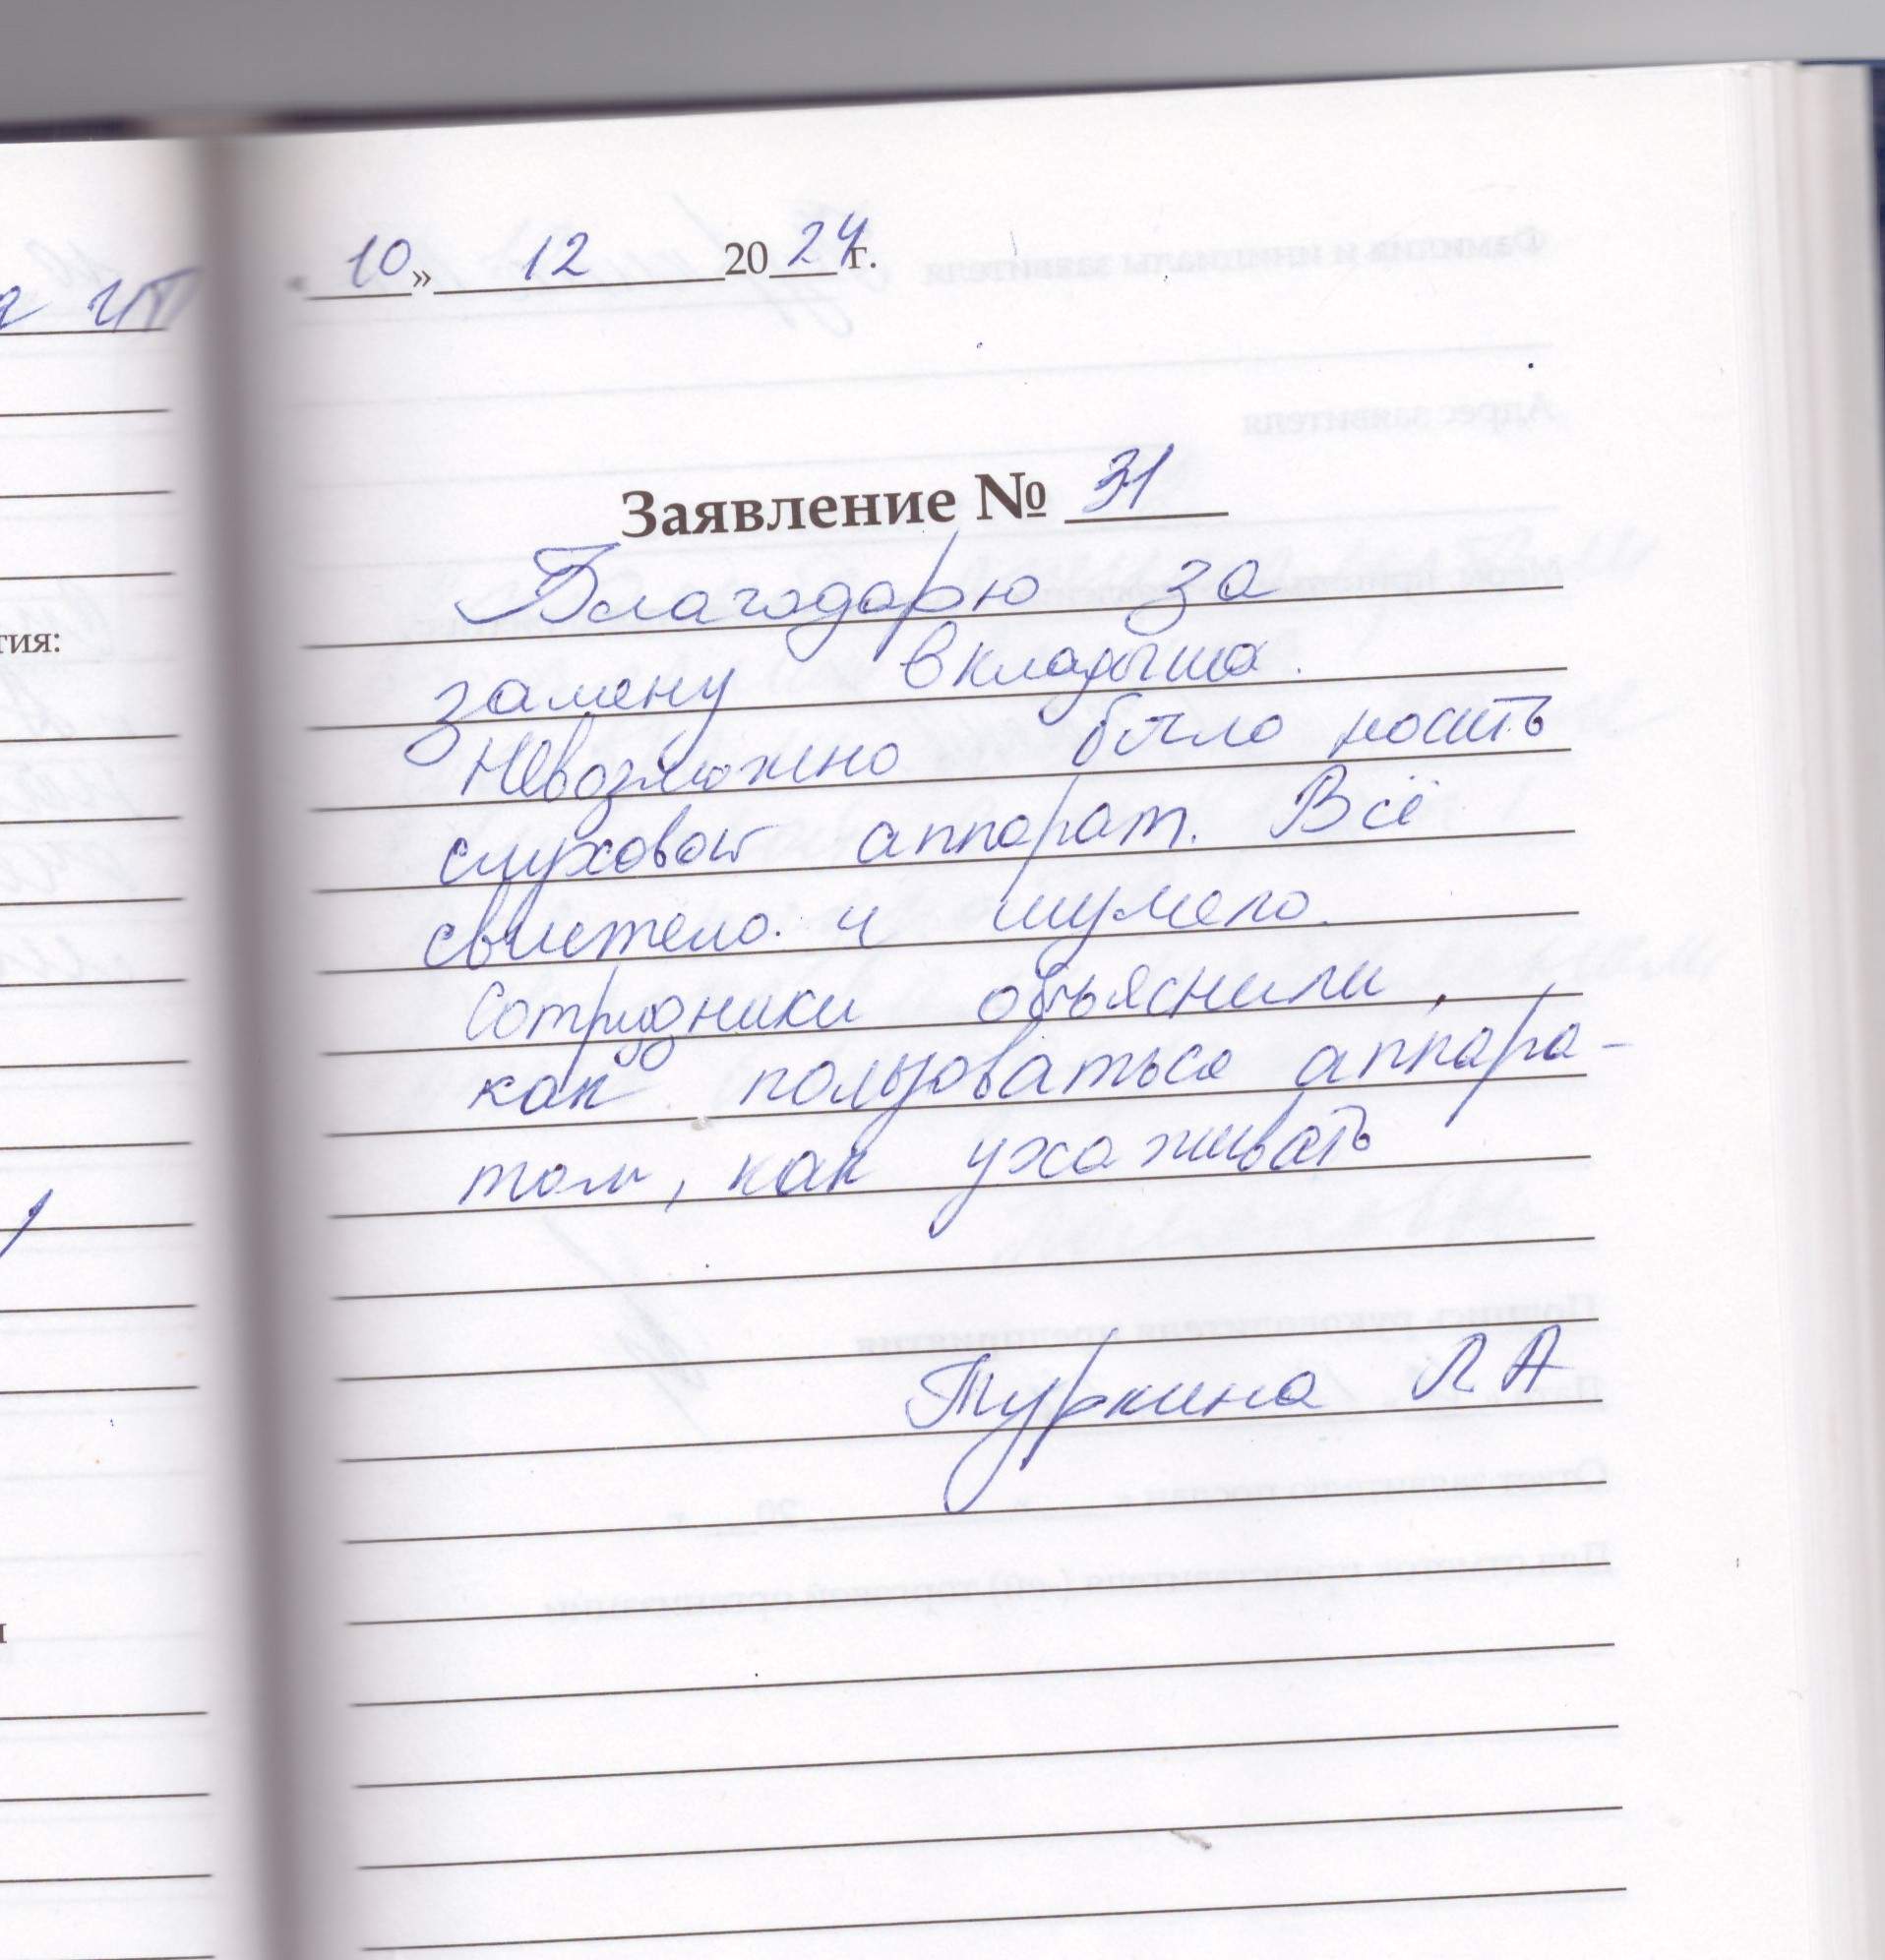 «10» 12 2024 г.
Заявление № 31
Благодарю за
замену вкладыша.
Невозможно было носить
слуховой аппарат. Всё
свистело и шумело.
Сотрудники объяснили,
как пользоваться аппара-
том, как ухаживать
Туркина Л А
тия: